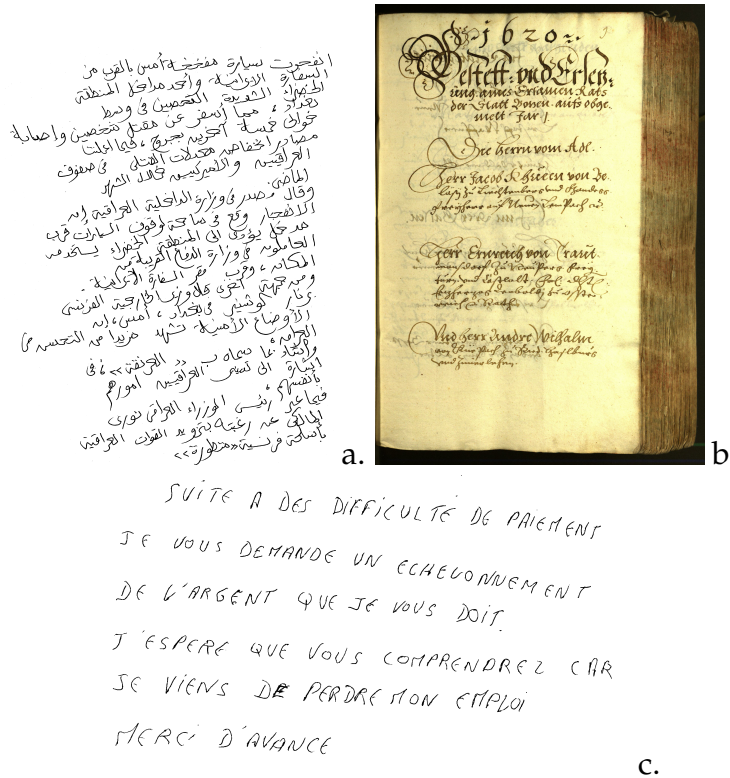 انفجرت سيارة مفخخة أمس بالقرب من
السفارة الايرانية وأحد مداخل المنطقة
الخضراء الشديدة التحصين في وسط
بغداد، مما أسفر عن مقتل شخصين واصابة
حوالي خمسة آخرين بجروح، فيما اعلنت
مصادر انخفاض معدلات القتلى في صفوف
العراقيين والاميركيين خلال الشهر
الماضي.
وقال مصدر في وزارة الداخلية العراقية إن
الانفجار وقع في ساحة لوقوف السيارات قرب
مدخل يؤدي الى المنطقة الخضراء يستخدمه
العاملون في وزارة الدفاع القريبة من
المكان، وقرب مقر السفارة الايرانية.
ومن جهة أخرى قال وزير الخارجية الفرنسي
برنار كوشنير في بغداد، أمس، إن
الأوضاع الأمنية تشهد مزيدا من التحسن في
العراق،
وأشاد بما سماه ب «العرقنة»، في
اشارة الى تسيير العراقيين امورهم
بأنفسهم،
فيما عبر رئيس الوزراء العراقي نوري
المالكي عن رغبته بتزويد القوات العراقية
بأسلحة فرنسية «متطورة»
a.
1620
Besteet: und Ersez:
ung aines Ersamen Rats
der Statt Bozen aufs obge:
melt Jar
Die Herrn vom Adl.
Herr Jacob Khuen von Be
Und Herr Andre Wilhalm
b
SUITE A DES DIFFICULTÉ DE PAIEMENT
JE VOUS DEMANDE UN ECHELONNEMENT
DE L'ARGENT QUE JE VOUS DOIT.
J'ESPERE QUE VOUS COMPRENDREZ CAR
JE VIENS DE PERDRE MON EMPLOI
MERCI D'AVANCE
c.